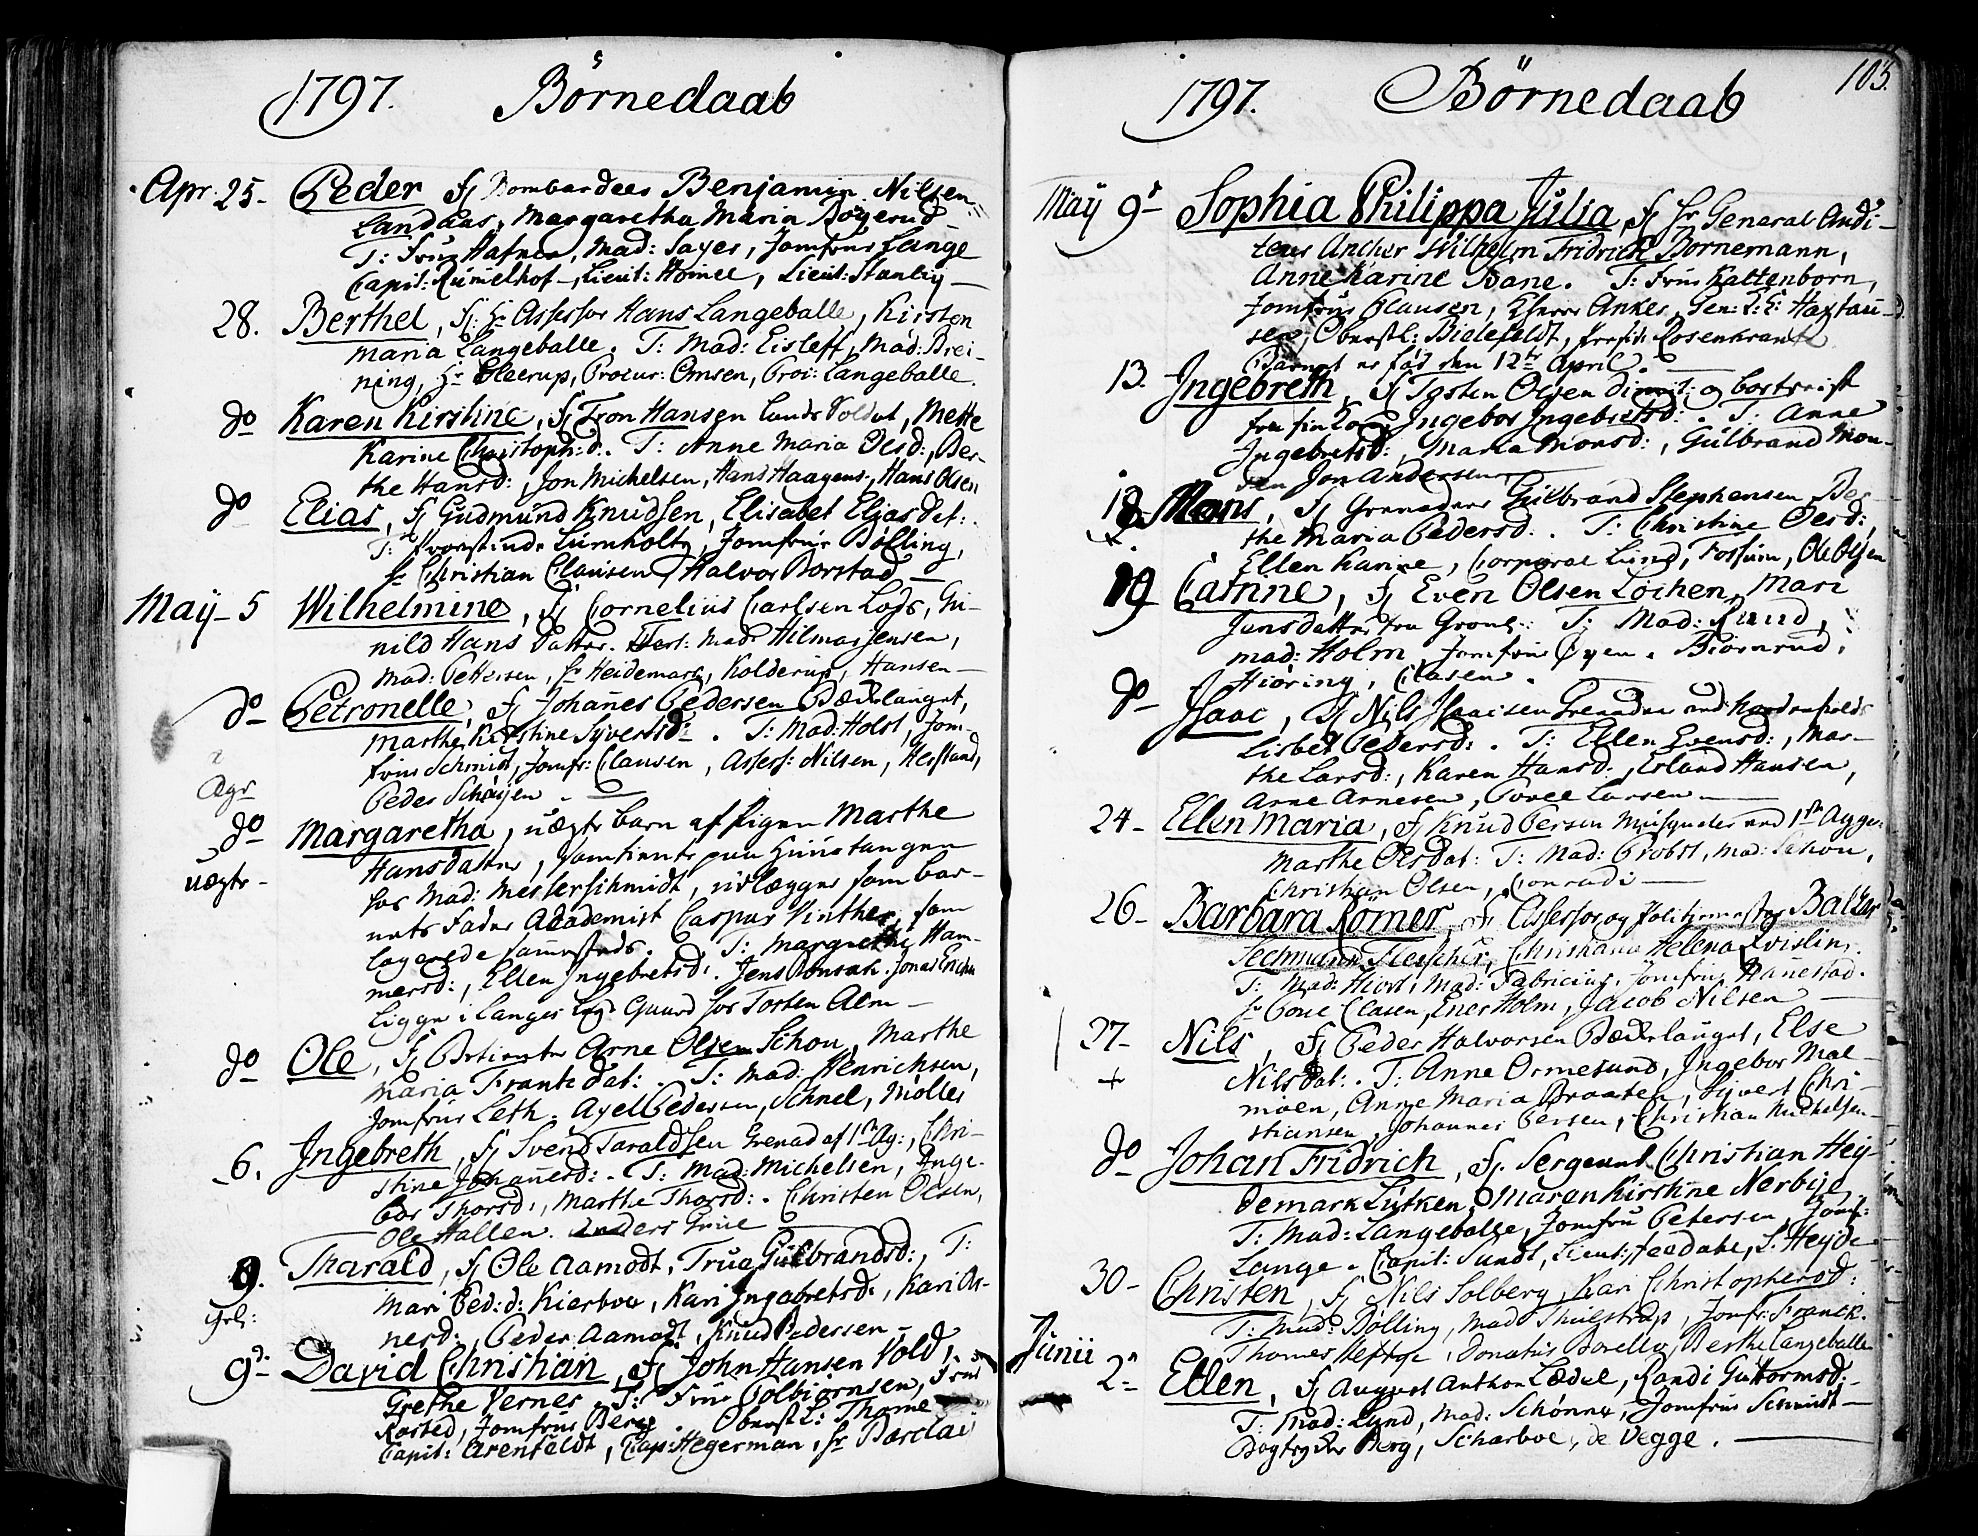 1797. Börnedaab
Apr. 25- Peder, Benjamin Nilsen
Landaas, Margaretha Maria
T: Frue Hafner, Mad: Sayer, Jomfrue Lange
Capit: Rümelhof, Lieut: Hömee, Lieut: Stanley
28. Berthel, Hr Assessor Hans Langeballe, Kirsten
Maria Langeballe. T: Mad: Eisleff, Mad: Brei-
ning, Hr Procur: Omsen, Proc: Langeballe.
do Karen Kirstine, Tron Hansen Lands Soldat, Mette
Karine Christoph:d. T: Anne Maria Olsd:, Ber-
the Hansd:, Jon Michelsen, Hans Haagens:, Hans Olsen
do Elias, Gudmund Knudsen, Elisabet Eliasdat:
T: Jomfrue Bölling,
Hr Christian Clausen, Halvor Borstad
May- 5 Wilhelmine, Cornelius Carlsen Gu-
nild Hans Datter. Mad: Hilmar Jensen,
Mad: Pettersen, Hr Heidemark, Kolderup, Hansen
do Petronelle, Johanes Pedersen Bækkelauget,
Marthe Kirstine Syversd: . T: Mad: Holst, Jom-
frue Schmidt, Jomfr: Clausen, Assess: Nilsen,
Peder Schøyen
Agr
do Margaretha, uægte barn af Pigen Marthe
uægte - Hansdatter,
hos Mad: Mesterschmidt, udlægger som bar-
nets Fader Academist Caspar Vinther, som
T: Margrethe Ham-
mersd:, Ellen Ingebretsd:. Jens
ligge i Langes Gaard hos Torsten Alm
do Ole, Betiente Arne Olsen Schou, Marthe
Maria Frantzdat: T: Mad: Henrichsen,
Jomfrue Leth. Axel Pedersen, Schnel, Möller
6. Ingebreth, Svend Taraldsen Grenad af 1ste Ag:, Chri-
stine Johanesd: . T: Mad: Michelsen, Inge-
bor Thorsd:, Marthe Thorsd: . Christen Olsen,
Ole Hallen. Anders Grüe
9. Tharald, Ole Aamodt, Trua Gulbrandsd:, T:
Mari Ped:d: Kierboe, Kari Ingebretsd:, Kari Ar-
nesd:, Peder Aamodt, Knud Pedersen
9de David Christian, John Hansen Vold,
Grethe Vernes. T: Frue Colbiørnsen, Frue
Rosted, Jomfrue Berg. Oberstl: Thome
Capit: Arenfeldt, Cap: Hegerman, Hr Barclai
1797. Börnedaab 103.
May 9de Sophia Philippa Julia, Hr General Audi-
teur Ancher Wilhelm Fridrich Bornemann,
Anne Karine Bane. T: Frue Kaltenborn,
Jomfrue Clausen, Anker, Gen: L: Haxtau-
sen, Oberstl: Bielefeldt, Rosenkrantz
Barnet er fød den 12te April.
13. Ingebreth, Tosten Olsen
Ingebor Ingebretsd: . T: Anne
Ingebretsd:, Maria Monsd:, Gulbrand Mon-
sen Jon Andersen
18 Hans, Grenadeer Gulbrand Stephensen Ber-
the Maria Pedersd: . T: Christine Olsd:,
Ellen Karine, Corporal Lund, Fossum, Ole Olsen
19 Catrine, Even Olsen Lochen, Mari
Jansdatter fra Grønl: T: Mad: Ruud,
Mad: Holm, Jomfrue Øyen. Biørnrud,
Hiöring, Clasen.
do Isaac, Nils Isaacsen Grenadeer
Lisbet Pedersd: . T: Ellen Evensd:, Mar-
the Larsd:, Karen Hansd:, Erland Hansen,
Arne Arnesen, Povel Larsen
24- Ellen Maria, Knud Persen Musqueteer ved 1ste Agger:
Marthe Olsdat: T: Mad: Probst, Mad: Schou,
Christian Olsen, Conradi
26- Barbara Römer, Assessor og Politimester Baltzer
Sechmann Fleischer, Christiana Helena Qvislin.
T: Mad: Hiort, Mad: Fabricius, Jomfrue Hanestad.
Hr Povel Clasen, Ener Holm, Jacob Nilsen
27- Nils, Peder Halvorsen Bækkelauget, Else
+ Nilsdat: . T: Anne Ormesund, Ingebor Mal-
möen, Anne Maria Braaten, Syvert Chri-
stiansen, Johannes Persen, Christian Michelsen
do Johan Fridrich, Sergeant Christian Hey-
demark Lütken, Maren Kirstine Nerbye
T: Mad: Langeballe, Jomfru Petersen, Jomf:
Lange. Capit: Sundt, Lieut: S: Heyde
30- Christen, Nils Solberg, Kari Christophersd:
T: Mad: Bölling, Mad: Thulstrup, Jomfr: Franck.
Thomas Heftye, Donatus Borella, Berthe Langeballe
Junii 2den Ellen, August Anthon Lædel, Randi Guttormsd:
T: Mad: Lund, Mad: Schønne, Jomfrue Schmidt
Bogtrykker Berg, Scharboe, de Vegge.